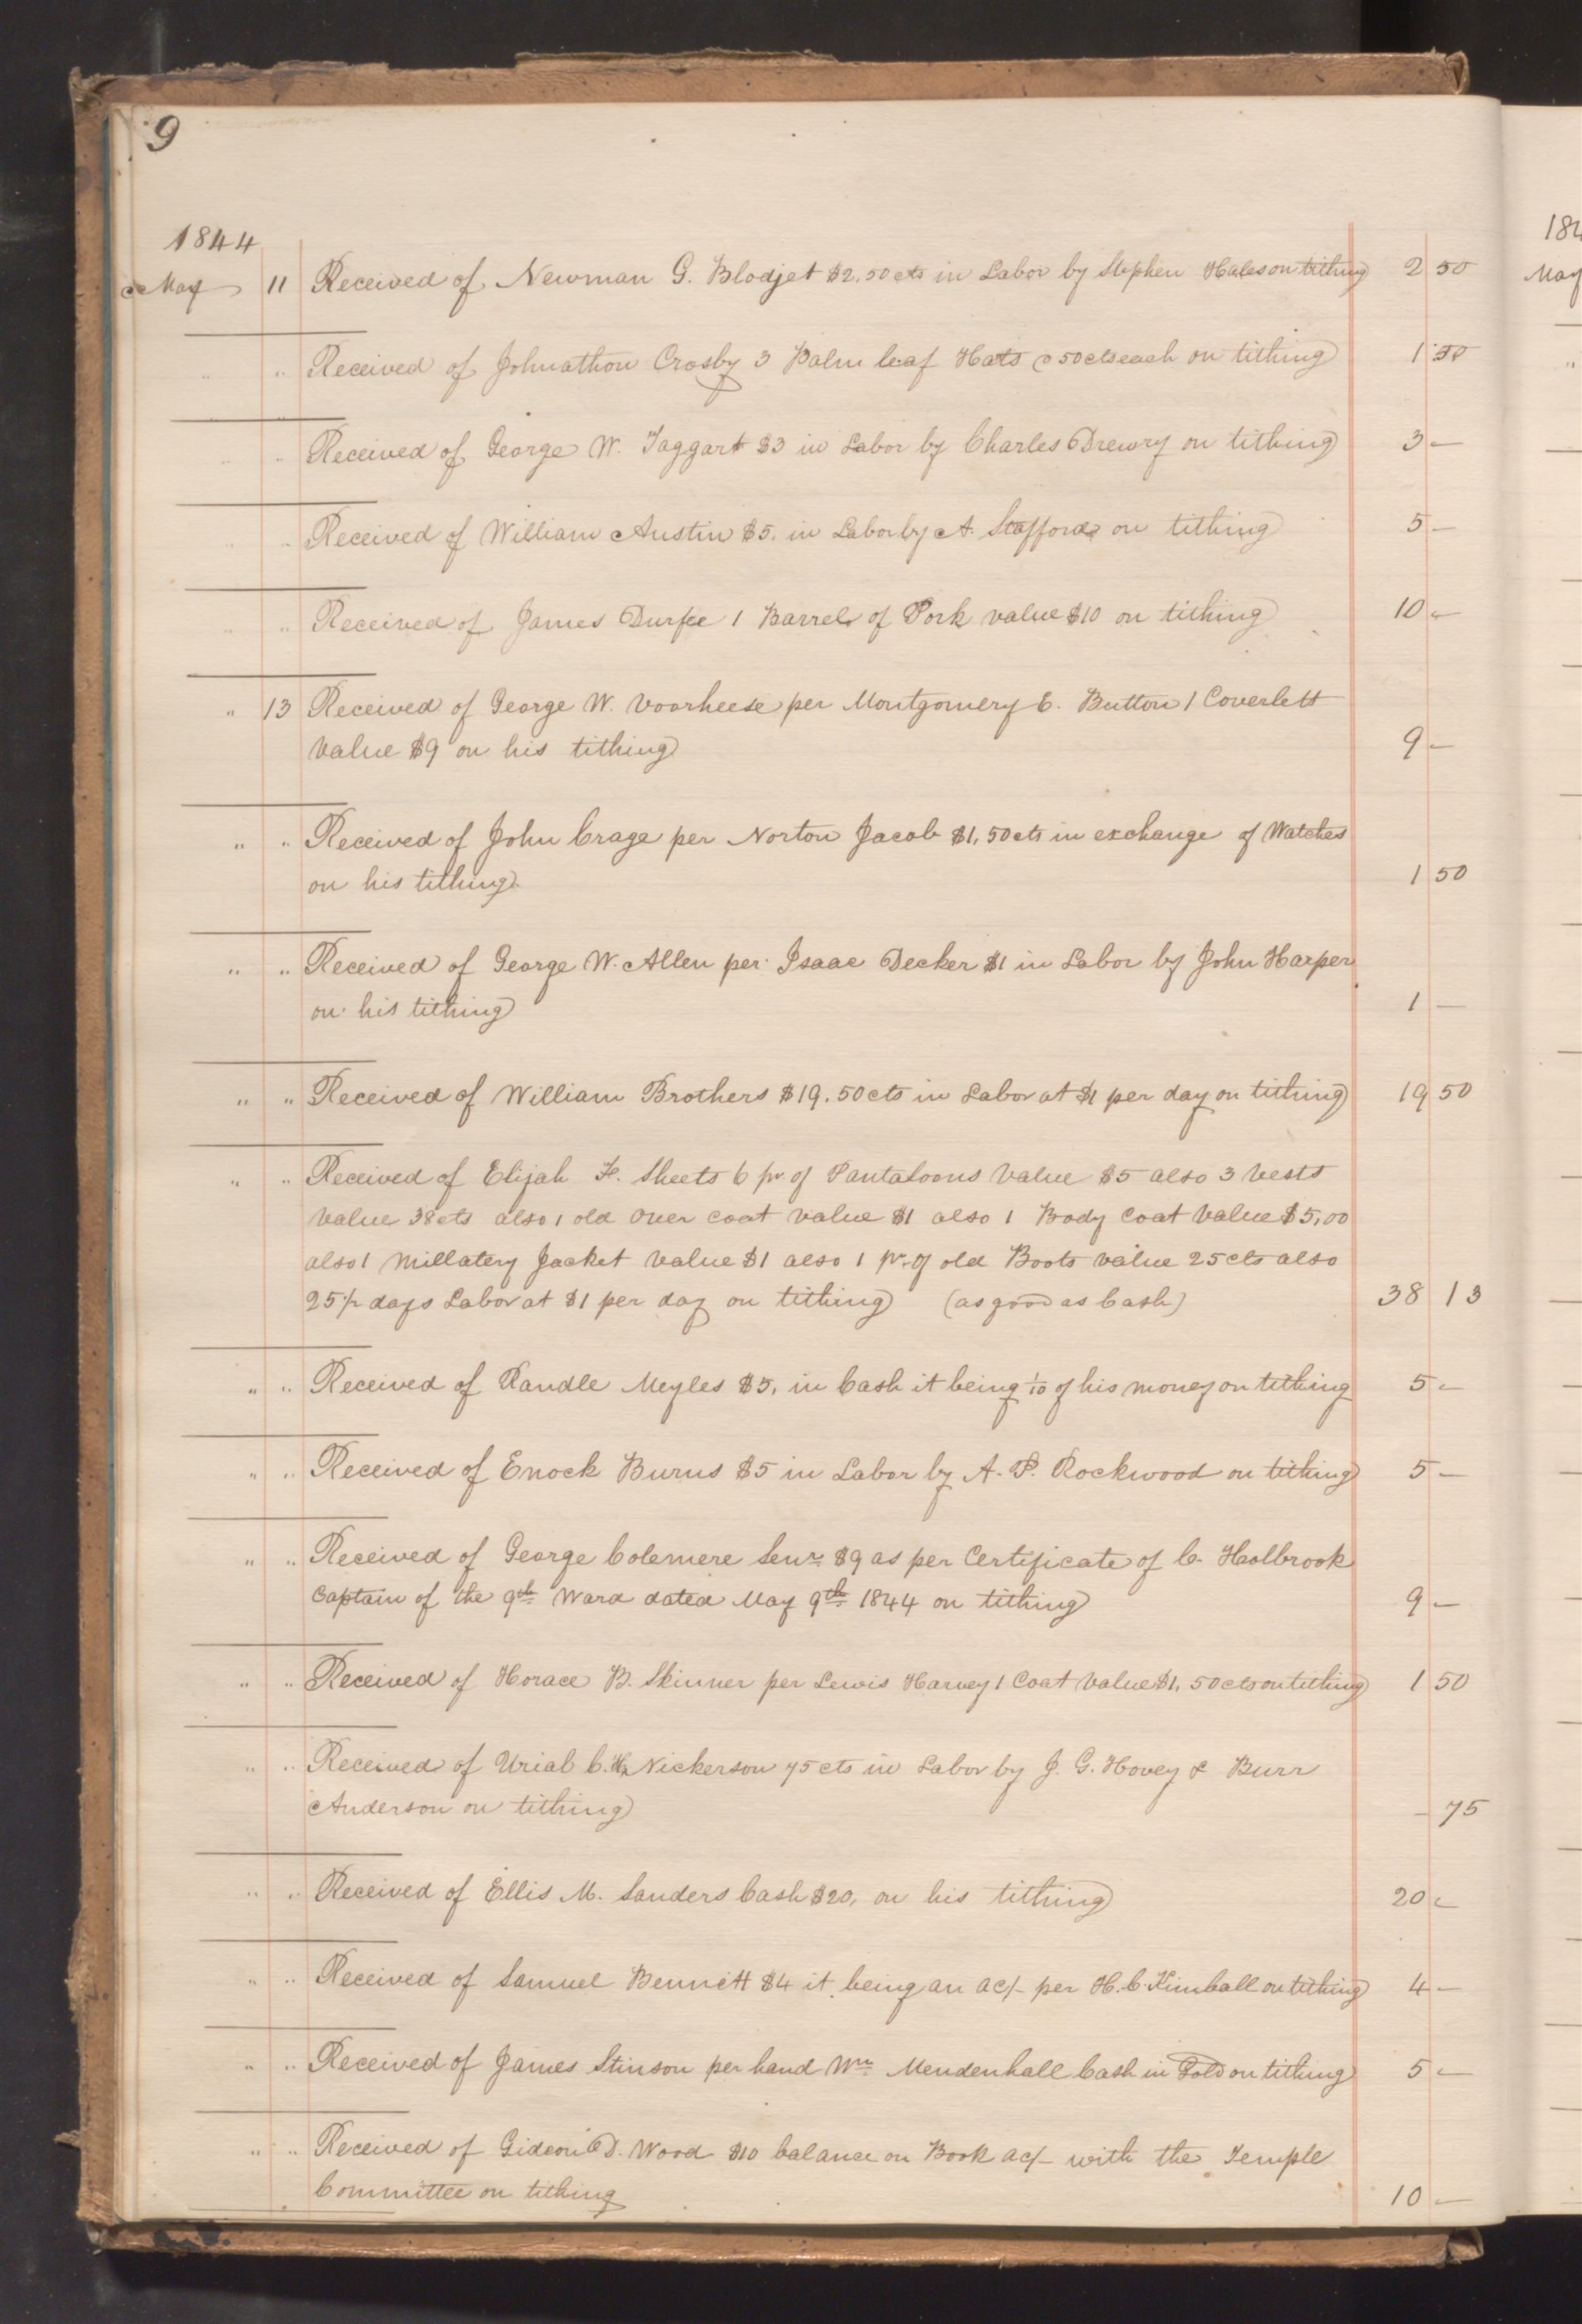 9
1844
May 11 Received of Newman G. Blodjet $2.50cts in Labor by Stephen Hales on tithing 2 50
" " Received of Johnathon Crosby 3 Palm leaf Hats @ 50cts each on tithing 1 50
" " Received of George W. Taggart $3 in Labor by Charles Drewry on tithing 3 —
" " Received of William Austin $5. in Labor by A. Stafford on tithing 5 —
" " Received of James Durfee 1 Barrel of Pork value $10 on tithing 10 —
" 13 Received of George W. Voorheese per Montgomery E. Button 1 Coverlett
value $9 on his tithing 9 —
" " Received of John Crage per Norton Jacob $1,50cts in exchange of Watches
on his tithing. 1 50
" " Received of George W. Allen per Isaac Decker $1 in Labor by John Harper
on his tithing 1 —
" " Received of William Brothers $19.50cts in Labor at $1 per day on tithing 19 50
" " Received of Elijah F. Sheets 6 pr of Pantaloons Value $5 also 3 vests
value 38cts also 1 old over coat value $1 also 1 Body Coat Value $5,00
also 1 Millatery Jacket value $1 also 1 pr. of old Boots value 25cts also
25½ days Labor at $1 per day on tithing (as good as Cash) 38 13
" " Received of Randle Meyles $5, in Cash it being 1/10 of his money on tithing 5 —
" " Received of Enock Burns $5 in Labor by A. P. Rockwood on tithing 5 —
" " Received of George Colemere Senr. $9 as per Certificate of C. Holbrook
Captain of the 9th Ward dated May 9th 1844 on tithing 9 —
" " Received of Horace B. Skinner per Lewis Harvey 1 Coat Value $1, 50cts on tithing 1 50
" " Received of Uriab C. H. Nickerson 75cts in Labor by J. G. Hovey & Burr
Anderson on tithing — 75
" " Received of Ellis M. Sanders Cash $20, on his tithing 20 —
" " Received of Samuel Bennett $4 it being an ac/- per H. C. Kimball on tithing 4 —
" " Received of James Stinson per hand Wm. Mendenhall Cash in Gold on tithing 5 —
" " Received of Gideon D. Wood $10 balance on Book ac/- with the Temple
Committee on tithing 10 —
184
May